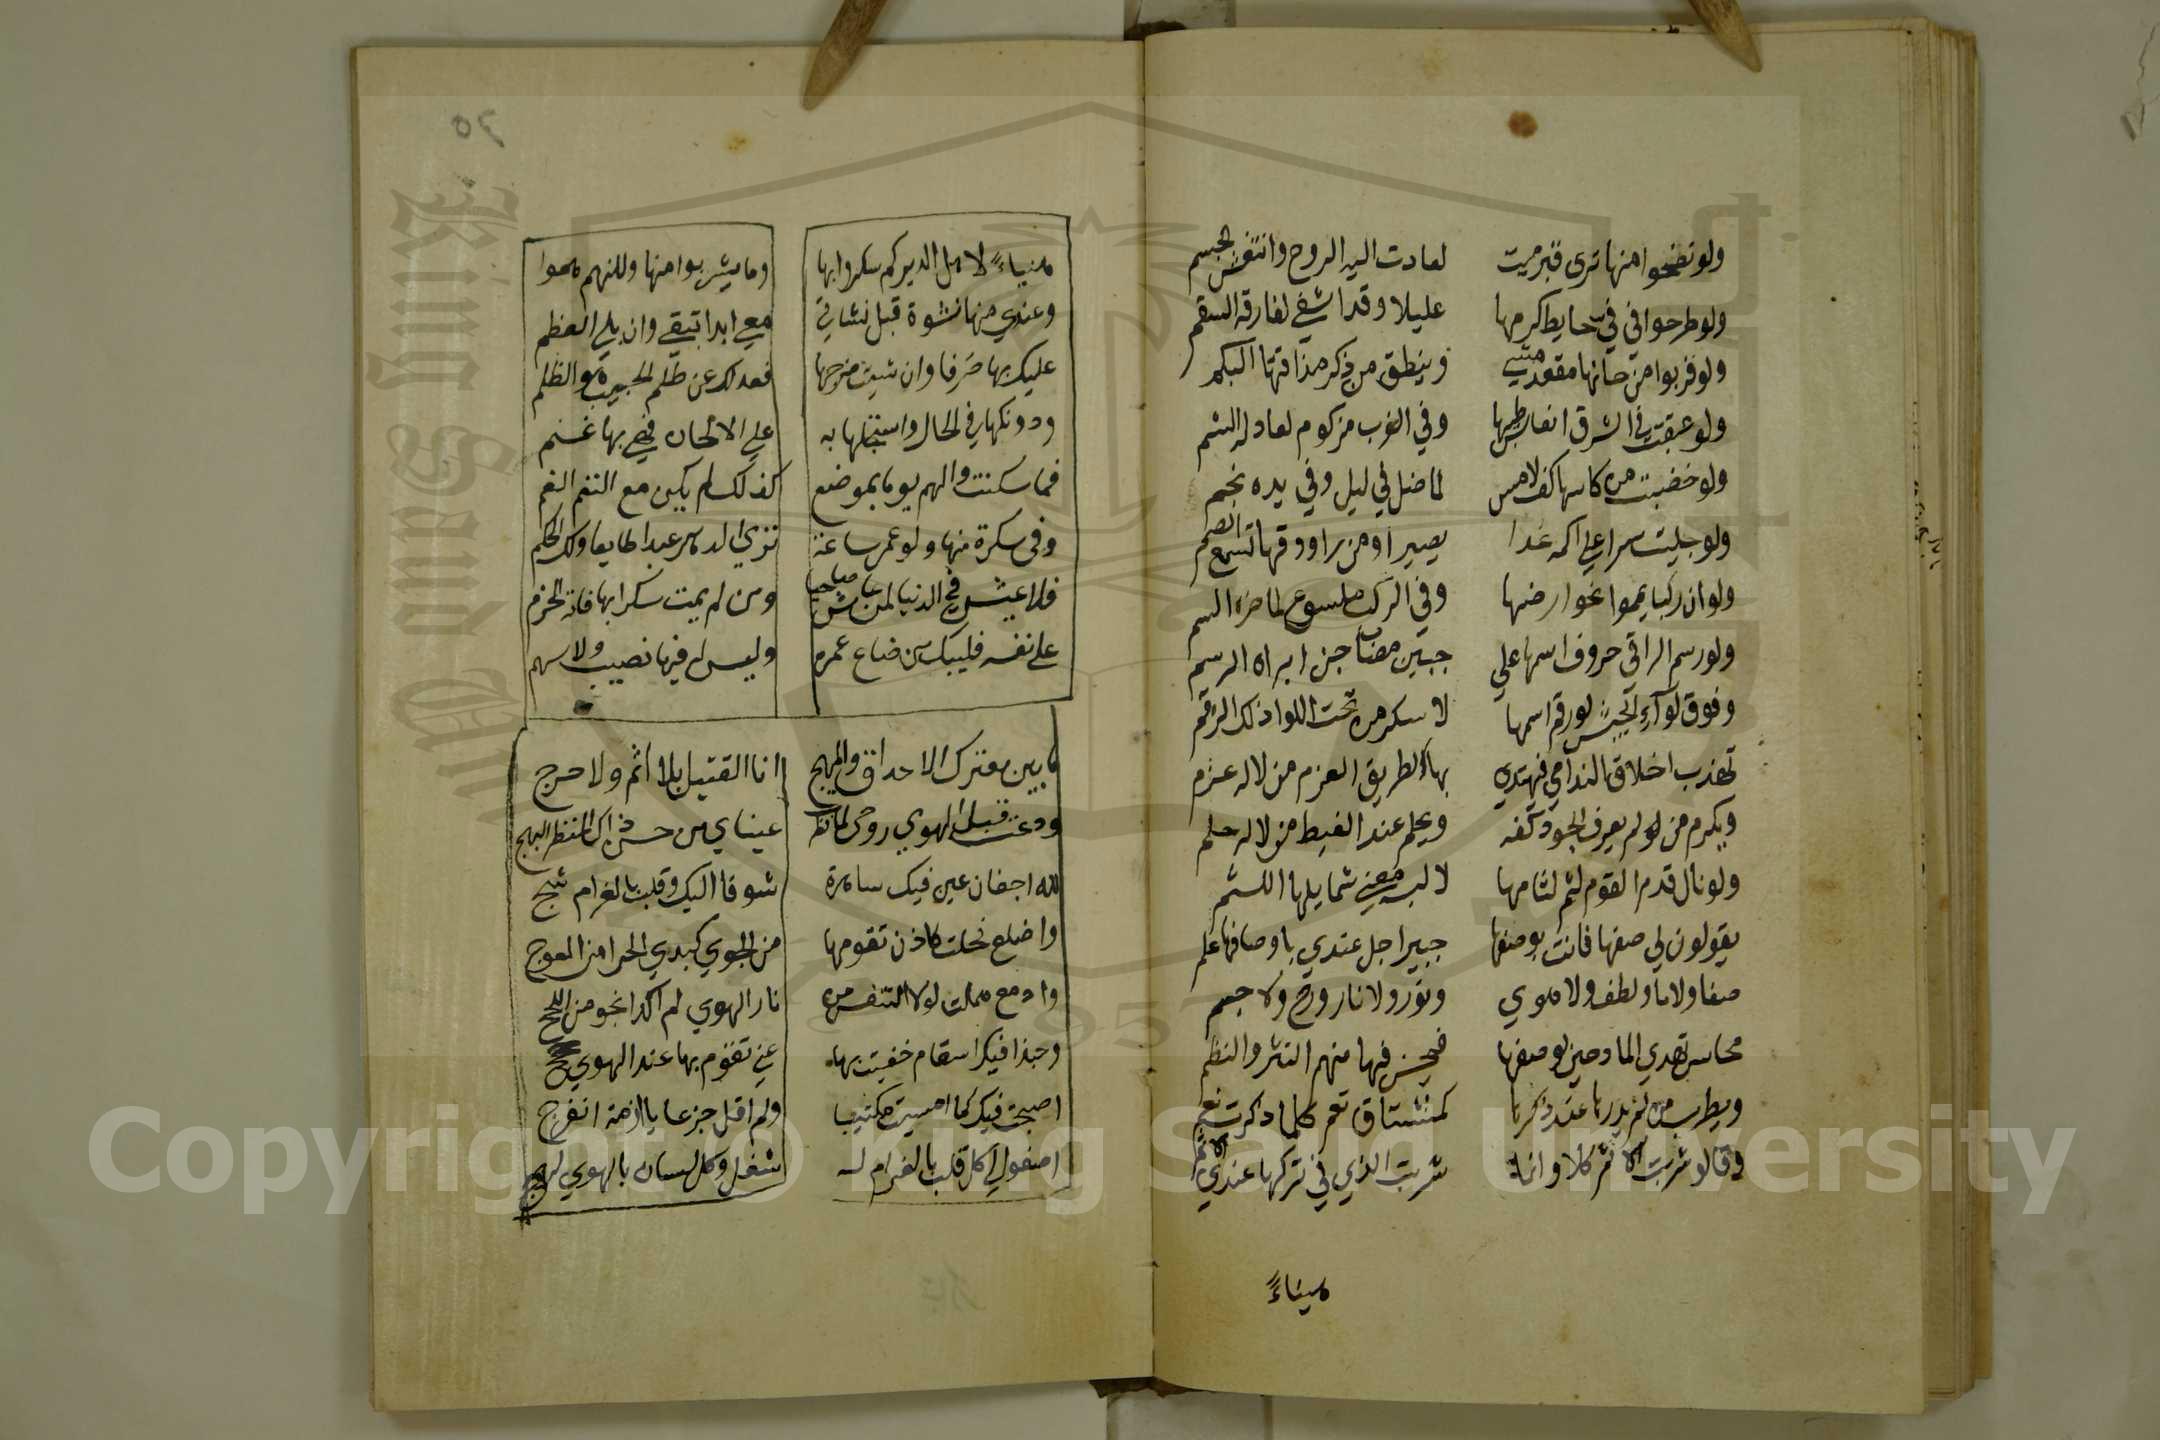 ولو نضحوا منها ثرى قبر ميت لعادت اليه الروح وانتعش الجسم
ولو طرحوا في في حايط كرمها عليلا وقد اشفي لفارقه السقم
ولو قربوا من حانها مقعد مشي وينطق من ذكر مذاقتها البكم
ولو عبقت في الشرق انفاس طيبها وفي الغرب مزكوم لعاد له الشم
ولو خضبت من كاسها كف لامس لما ضل في ليل وفي يده نجم
ولو جليت سرا علي اكمه غدا بصيرا ومن راووقها تسمع الصم
ولو ان ركبا يمموا نحو ارضها وفي الركب ملسوع لما ضره السم
ولو رسم الراقي حروف اسمها علي جبين مصاب جن ابراه الرسم
وفوق لوآء الجيش لو رقم اسمها لاسكر من تحت اللوا ذلك الرقم
تهذب اخلاق الندامي فيهتدي بها لطريق العزم من لا له عزم
ويكرم من لو لم يعرف الجود كفه ويحلم عند الغيظ من لا له حلم
ولو نال قدم القوم لثم لثامها لاكسبه معني شمايلها اللثم
يقولون لي صفها فانت بوصفها خبيرا جل عندي باوصافها علم
صفا ولا ما ولطف ولا هوي ونور ولا نار وروح ولا جسم
محاسن تهدي المادحين لوصفها فيحسن فيها منهم النثر والنظم
ويطرب من لم يدرها عند ذكرها كمشتاق نعم كلما ذكرت نعم
وقالو شربت الاثم كلا وانما شربت الذي في تركها عندي الاثم
هنيئاءً
٢٥
هنياءً لاهل الدير كم سكروا بها وما شربوا منها ولكنهم هموا
وعندي منها نشوة قبل نشاتي معي ابدا تبقي وان بلي العظم
عليك بها صرفا وان شيت مزجها فعدلك عن ظلم الحبيب هو الظلم
ودونكها في الحال واستجلها به علي الالحان فهي بها غنم
فما سكنت والهم يوما بموضع كذلك لم يكن مع النغم الغم
وفي سكرة منها ولو عمر ساعة تري الدهر عبدا طايعا ولك الحكم
فلا عيش في الدنيا لمن عاش صاحيا ومن لم يمت سكرا بها فاته الحزم
علي نفسه فليبك من ضاع عمره وليس له فيها نصيب ولا سهم
ما بين معترك الاحداق والمهج انا القتيل بلا اثم ولا حرج
ودعت قبل الهوي روحي لما نظرت عيناي من حسن ذاك المنظر البهج
لله اجفان عين فيك ساهرة شوقا اليك وقلب بالغرام شج
واضلع نحلت كادت تقومها من الجوي كبدي الحرا من العوج
وادمع هملت لولا التنفس من نار الهوي لم اكد انجو من اللجج
وحبذا فيك اسقام خفيت بها عني تقوم بها عند الهوي حجج
اصبحت فيك كما امسيت مكتيبا ولم اقل جزعا يا ازمة انفرج
اصفو الي كل قلب بالغرام له شغل وكل لسان بالهوي لهج
Copyright © King Saud University
King Saud University
1957